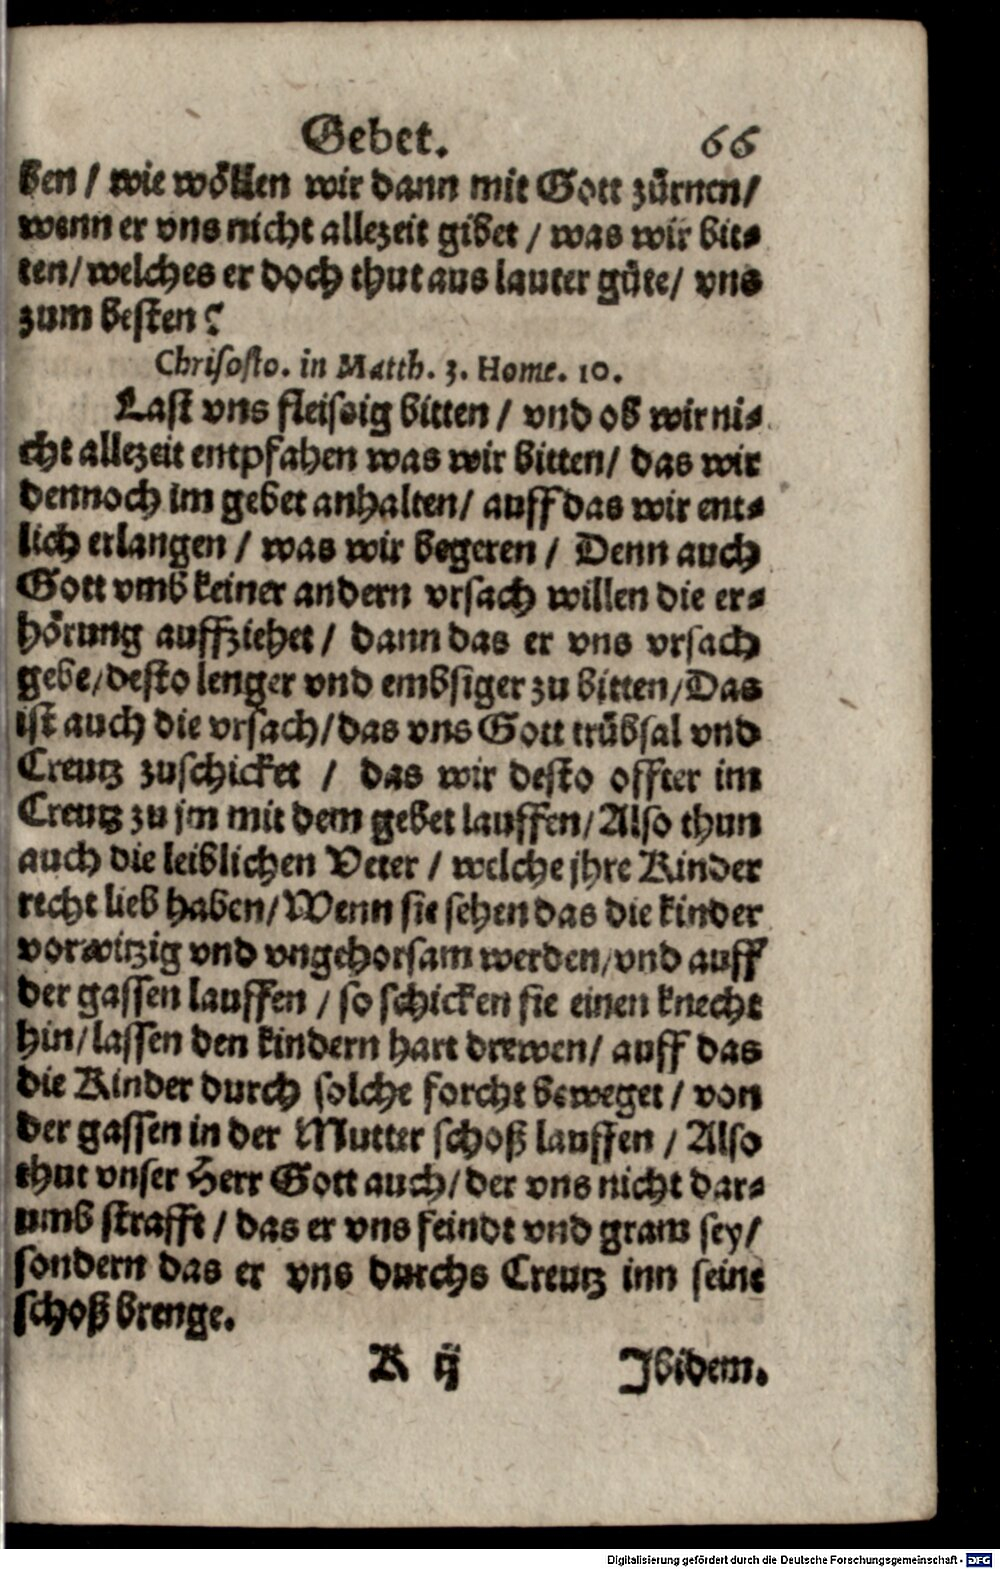 Gebet. 66
ben / wie wöllen wir dann mit Gott zürnen/
wenn er vns nicht allezeit gibet / was wir bit-
ten/ welches er doch thut aus lauter güte/ vns
zum besten?
Chrisosto. in Matth. 3. Home. 10.
Last vns fleissig bitten / vnd ob wir ni-
cht allezeit entpfahen was wir bitten/ das wir
dennoch im gebet anhalten/ auff das wir ent-
lich erlangen / was wir begeren / Denn auch
Gott vmb keiner andern vrsach willen die er-
hörung auffziehet / dann das er vns vrsach
gebe/ desto lenger vnd embsiger zu bitten/ Das
ist auch die vrsach/ das vns Gott trübsal vnd
Creutz zuschicket / das wir desto offter im
Creutz zu jm mit dem gebet lauffen/ Also thun
auch die leiblichen Veter / welche jhre Kinder
recht lieb haben/ Wenn sie sehen das die kinder
vorwitzig vnd vngehorsam werden/ vnd auff
der gassen lauffen / so schicken sie einen knecht
hin/ lassen den kindern hart drewen/ auff das
die Kinder durch solche forcht beweget / von
der gassen in der Mutter schoß lauffen / Also
thut vnser Herr Gott auch/ der vns nicht dar-
umb strafft / das er vns feindt vnd gram sey/
sondern das er vns durchs Creutz inn seine
schoß brenge.
R ij Ibidem.
Digitalisierung gefördert durch die Deutsche Forschungsgemeinschaft - DFG